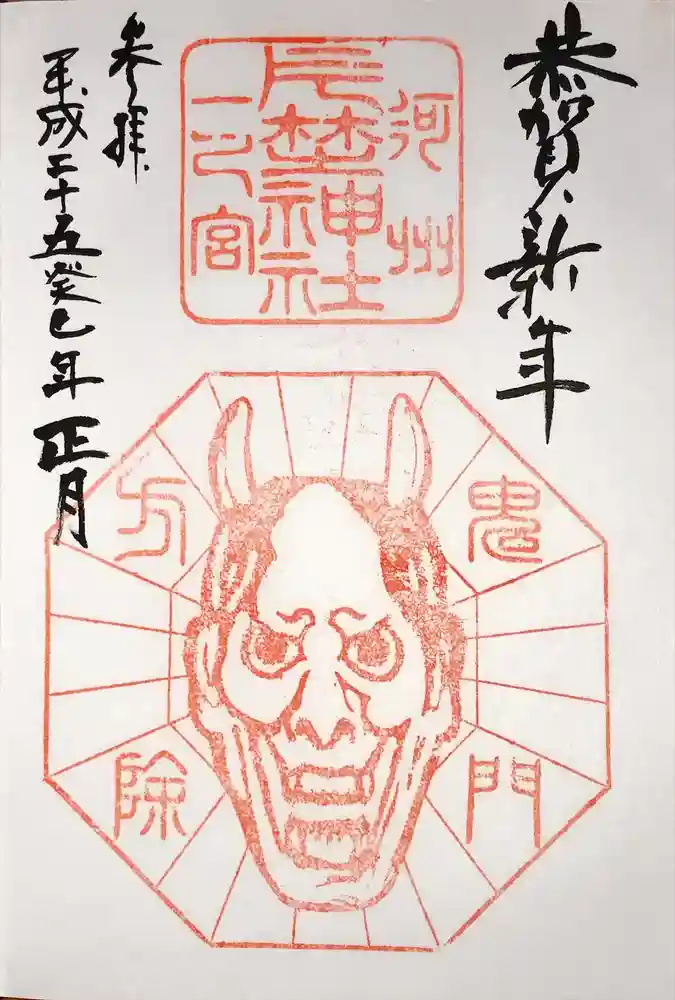 恭賀新年
河州
片埜神社
一之宮
参拝
平成二十五癸巳年正月
鬼門
方除